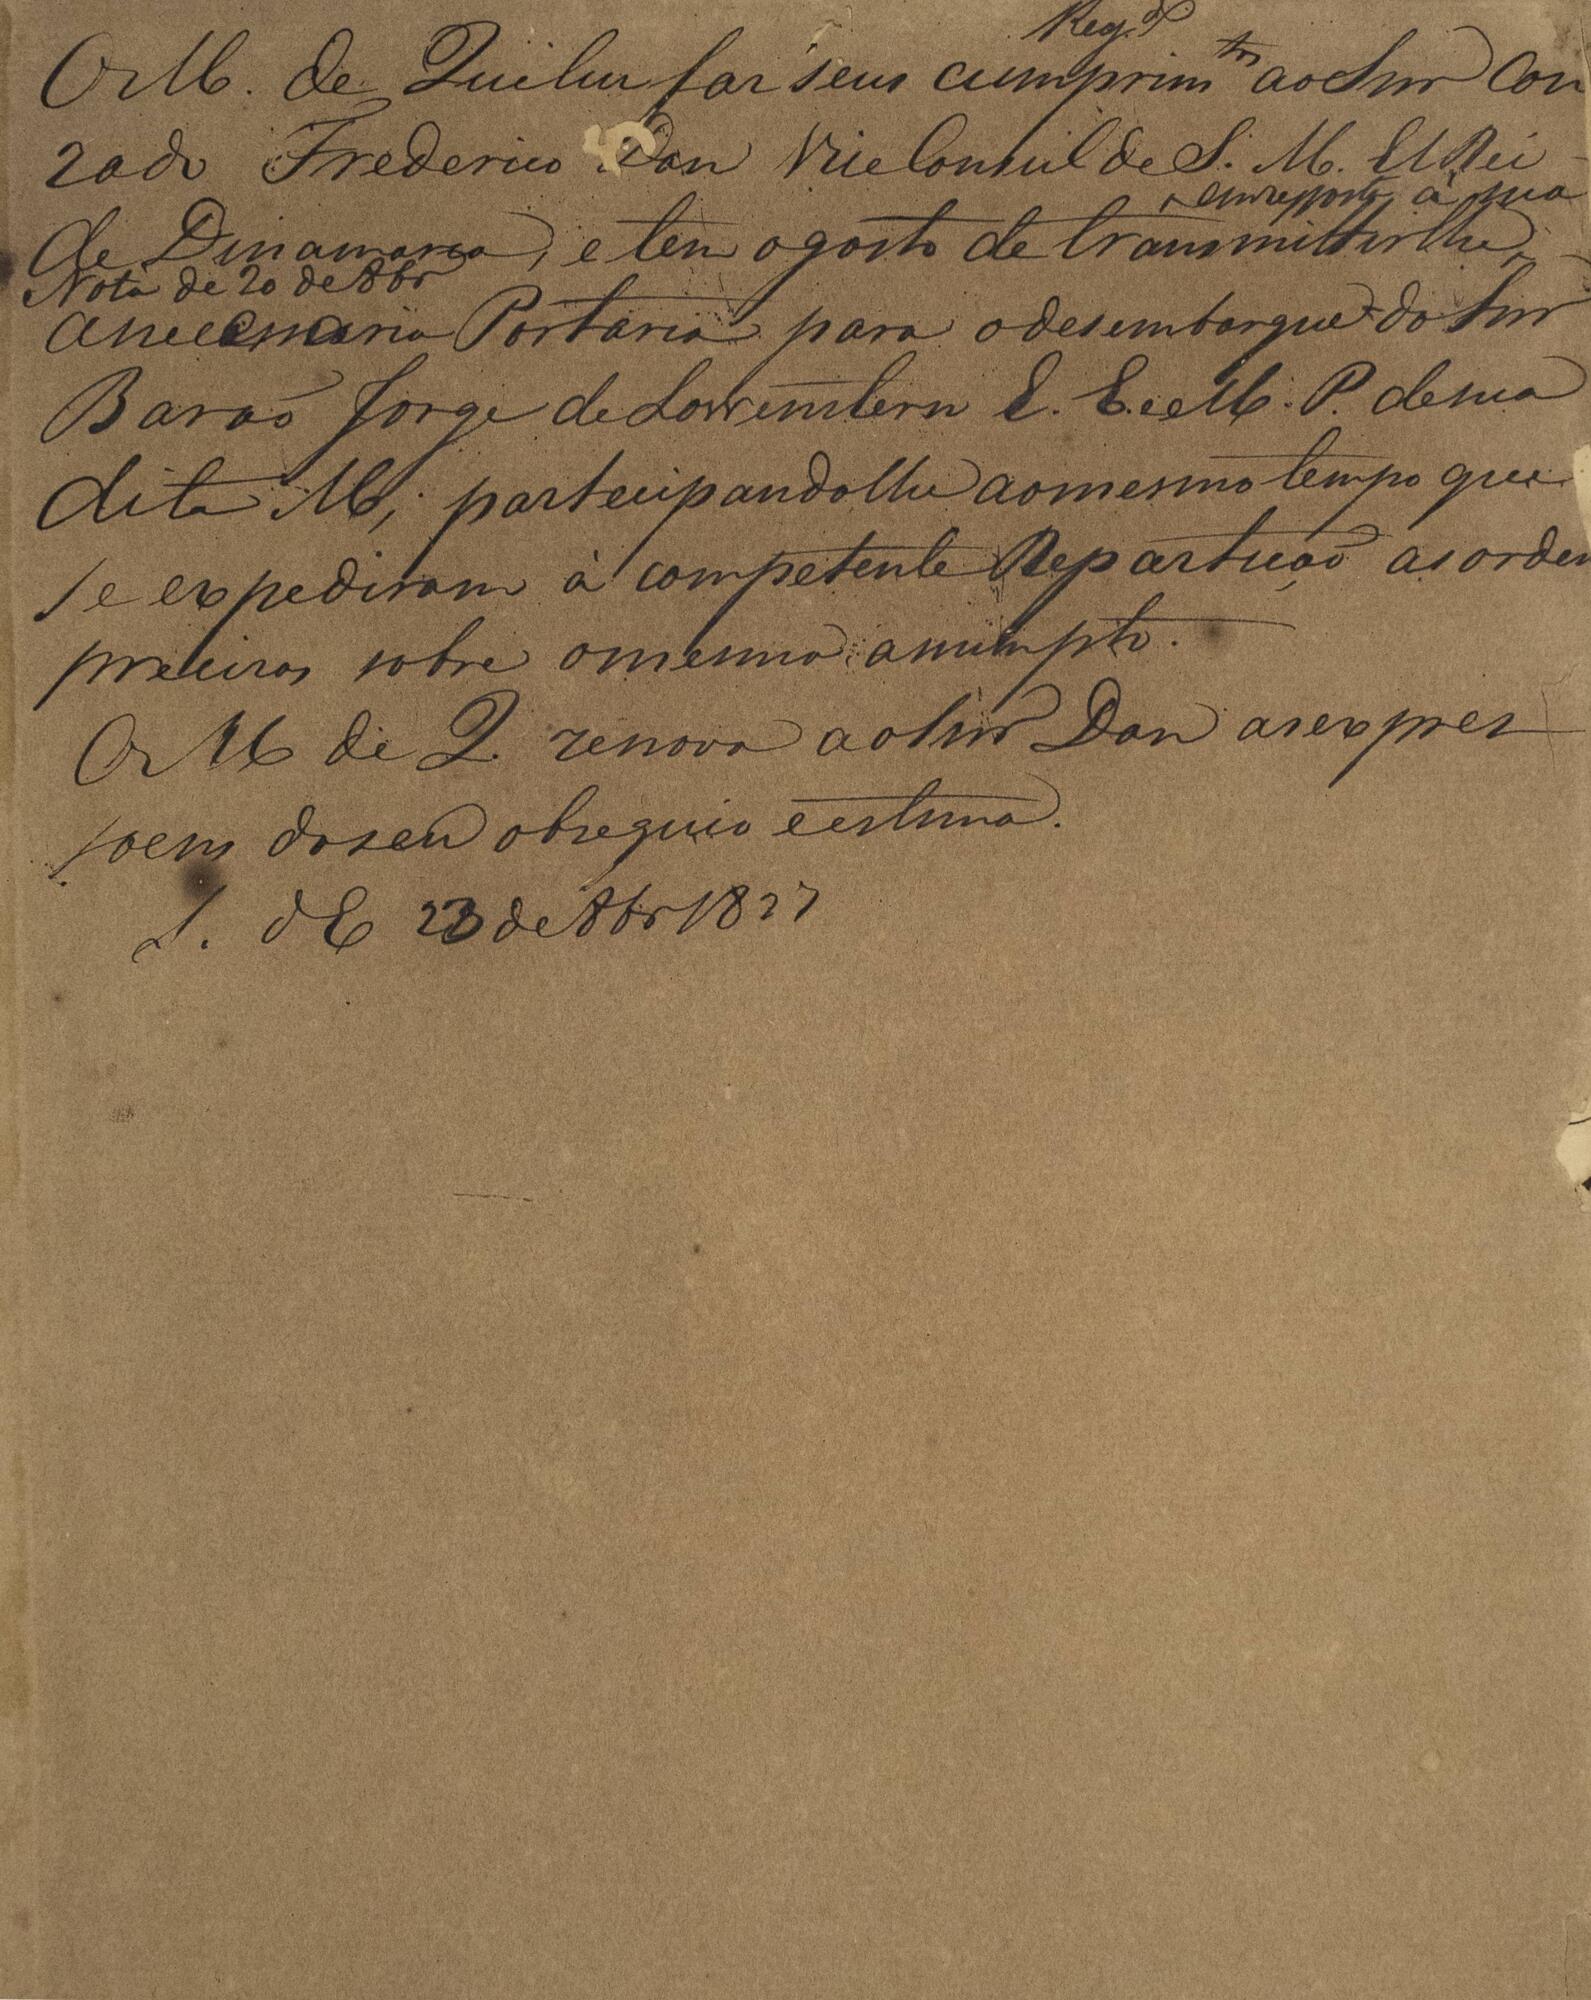 Reg.do
O M. de Queluz faz seus cumprim.tos ao Snr Con
rado Frederico Dan Vice Consul de S. M. ElRei
em resposta á sua
de Dinamarca, e tem o gosto de transmittir lhe,
Nota de 20 de Abr
a necessaria Portaria para o desembarque do Snr
Barão Jorge de Lowenstern E. E. e M. P. de sua
dita M, participandolhe ao mesmo tempo que
se expediram á competente Repartição as orden
precizas sobre o mesmo assumpto.
O M de Q. renova ao Snr Dan as expres
soens do seu obsequio e estima.
S. d E 23 de Abr 1827